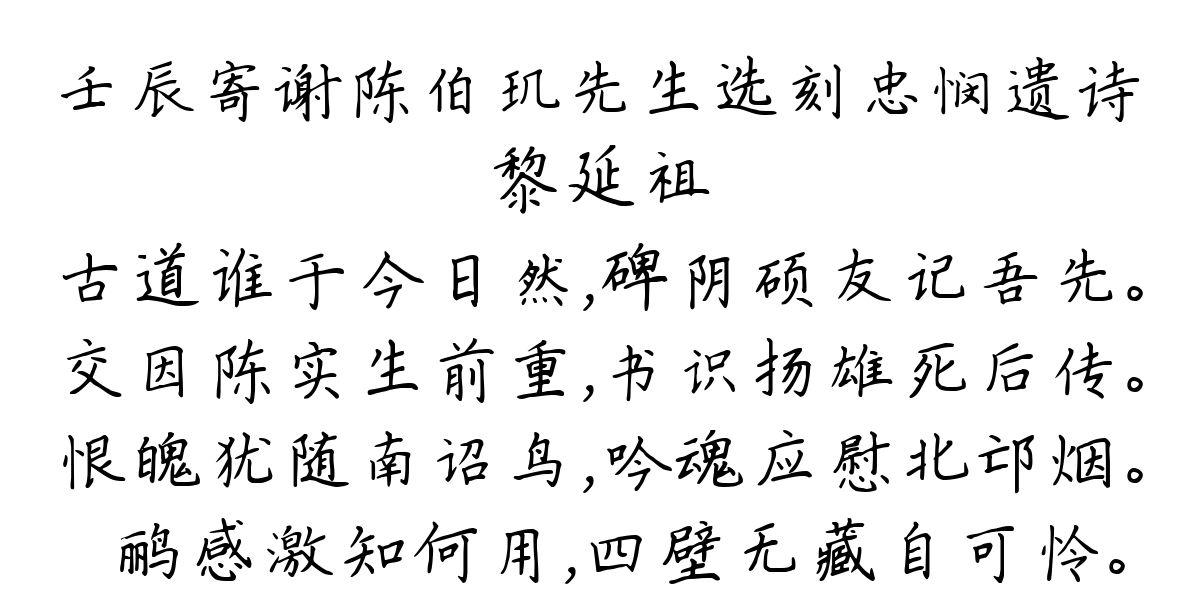 壬辰寄谢陈伯玑先生选刻忠悯遗诗
黎延祖
古道谁于今日然,碑阴硕友记吾先。
交因陈实生前重,书识扬雄死后传。
恨魄犹随南诏鸟,吟魂应慰北邙烟。
鹂感激知何用,四壁无藏自可怜。